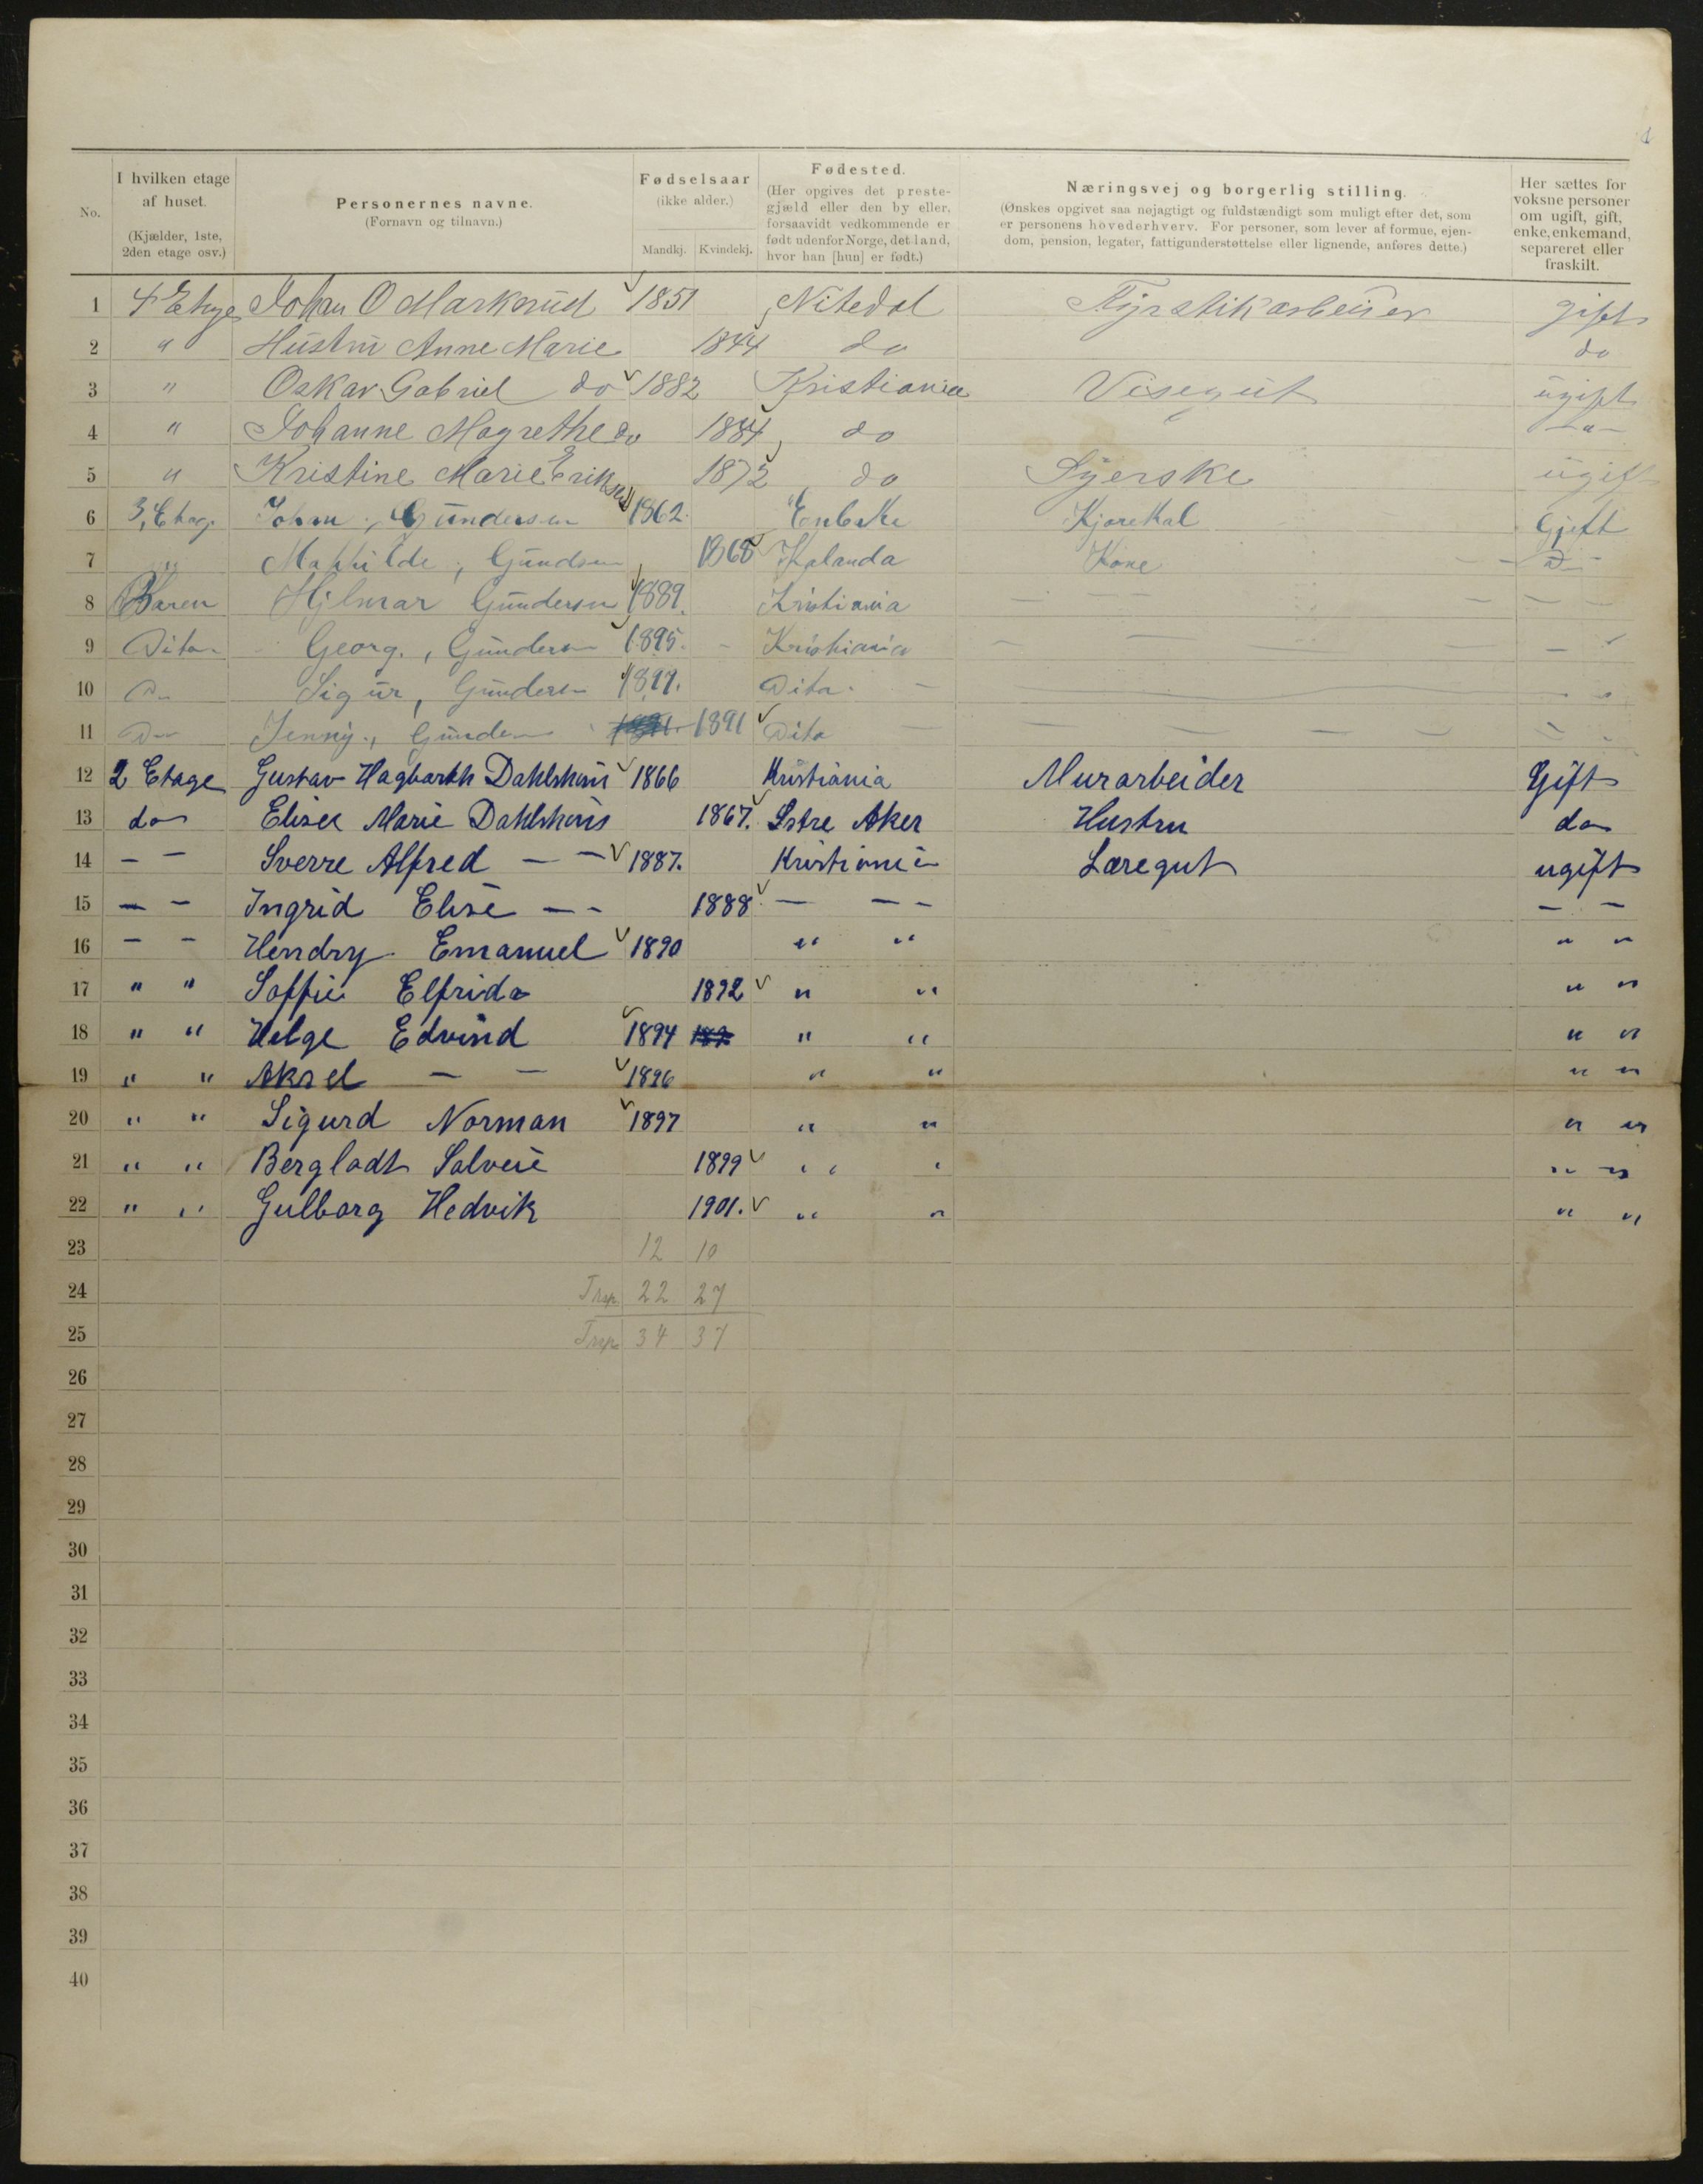 No.
I hvilken etage af huset. (Kjælder, 1ste, 2den etage osv.)
Personernes navne. (Fornavn og tilnavn.)
Fødselsaar (ikke alder.) Mandkj. Kvindekj.
Fødested. (Her opgives det prestegjæld eller den by eller, forsaavidt vedkommende er født udenfor Norge, det land, hvor han [hun] er født.)
Næringsvej og borgerlig stilling. (Ønskes opgivet saa nøjagtigt og fuldstændigt som muligt efter det, som er personens hovederhverv. For personer, som lever af formue, ejendom, pension, legater, fattigunderstøttelse eller lignende, anføres dette.)
Her sættes for voksne personer om ugift, gift, enke, enkemand, separeret eller fraskilt.
1 4 Etage Johan O Markerud 1851 Nitedal Fyrstikarbeider gift
2 " Hustru Anne Marie 1844 do do
3 " Oskar Gabriel do 1882 Kristiania Visegut ugift
4 " Johanne Magrethe do 1884 do — " —
5 " Kristine Marie Eriksen 1872 do Syerske ugift
6 3, Etag. Johan, Gundersen 1862. Enbake Kjørekal Gjeft
7 " Mathilde, Gundsen 1868 Høland Kone D
8 Baren Hjlmar Gundersen 1889. Kristiania — — —
9 Dito Georg., Gundersen 1895. Kristiania — — —
10 Do Sigur, Gundersen 1897. Dito. —
11 Do Jenny., Gunder 1891 Dito — — —
12 2 Etage Gustav Hagbarth Dahlshus 1866 Kristiania Murarbeider Gift
13 do Elise Marie Dahlshus 1867. Østre Aker Hustru do
14 — — Sverre Alfred — — 1887. Kristiania Læregut ugift
15 — — Ingrid Elise — — 1888. — — — — —
16 — — Hendry Emanuel 1890 " " " "
17 " " Soffie Elfrida 1892 " " " "
18 " " Helge Edvind 1894 " " " "
19 " " Aksel — — 1896 " " " "
20 " " Sigurd Norman 1897 " " " "
21 " " Bergladt Solvei 1899 " " " "
22 " " Gulborg Hedvik 1901. " " " "
23 12 10
24 Trsp. 22 27
25 Trsp. 34 37
26
27
28
29
30
31
32
33
34
35
36
37
38
39
40